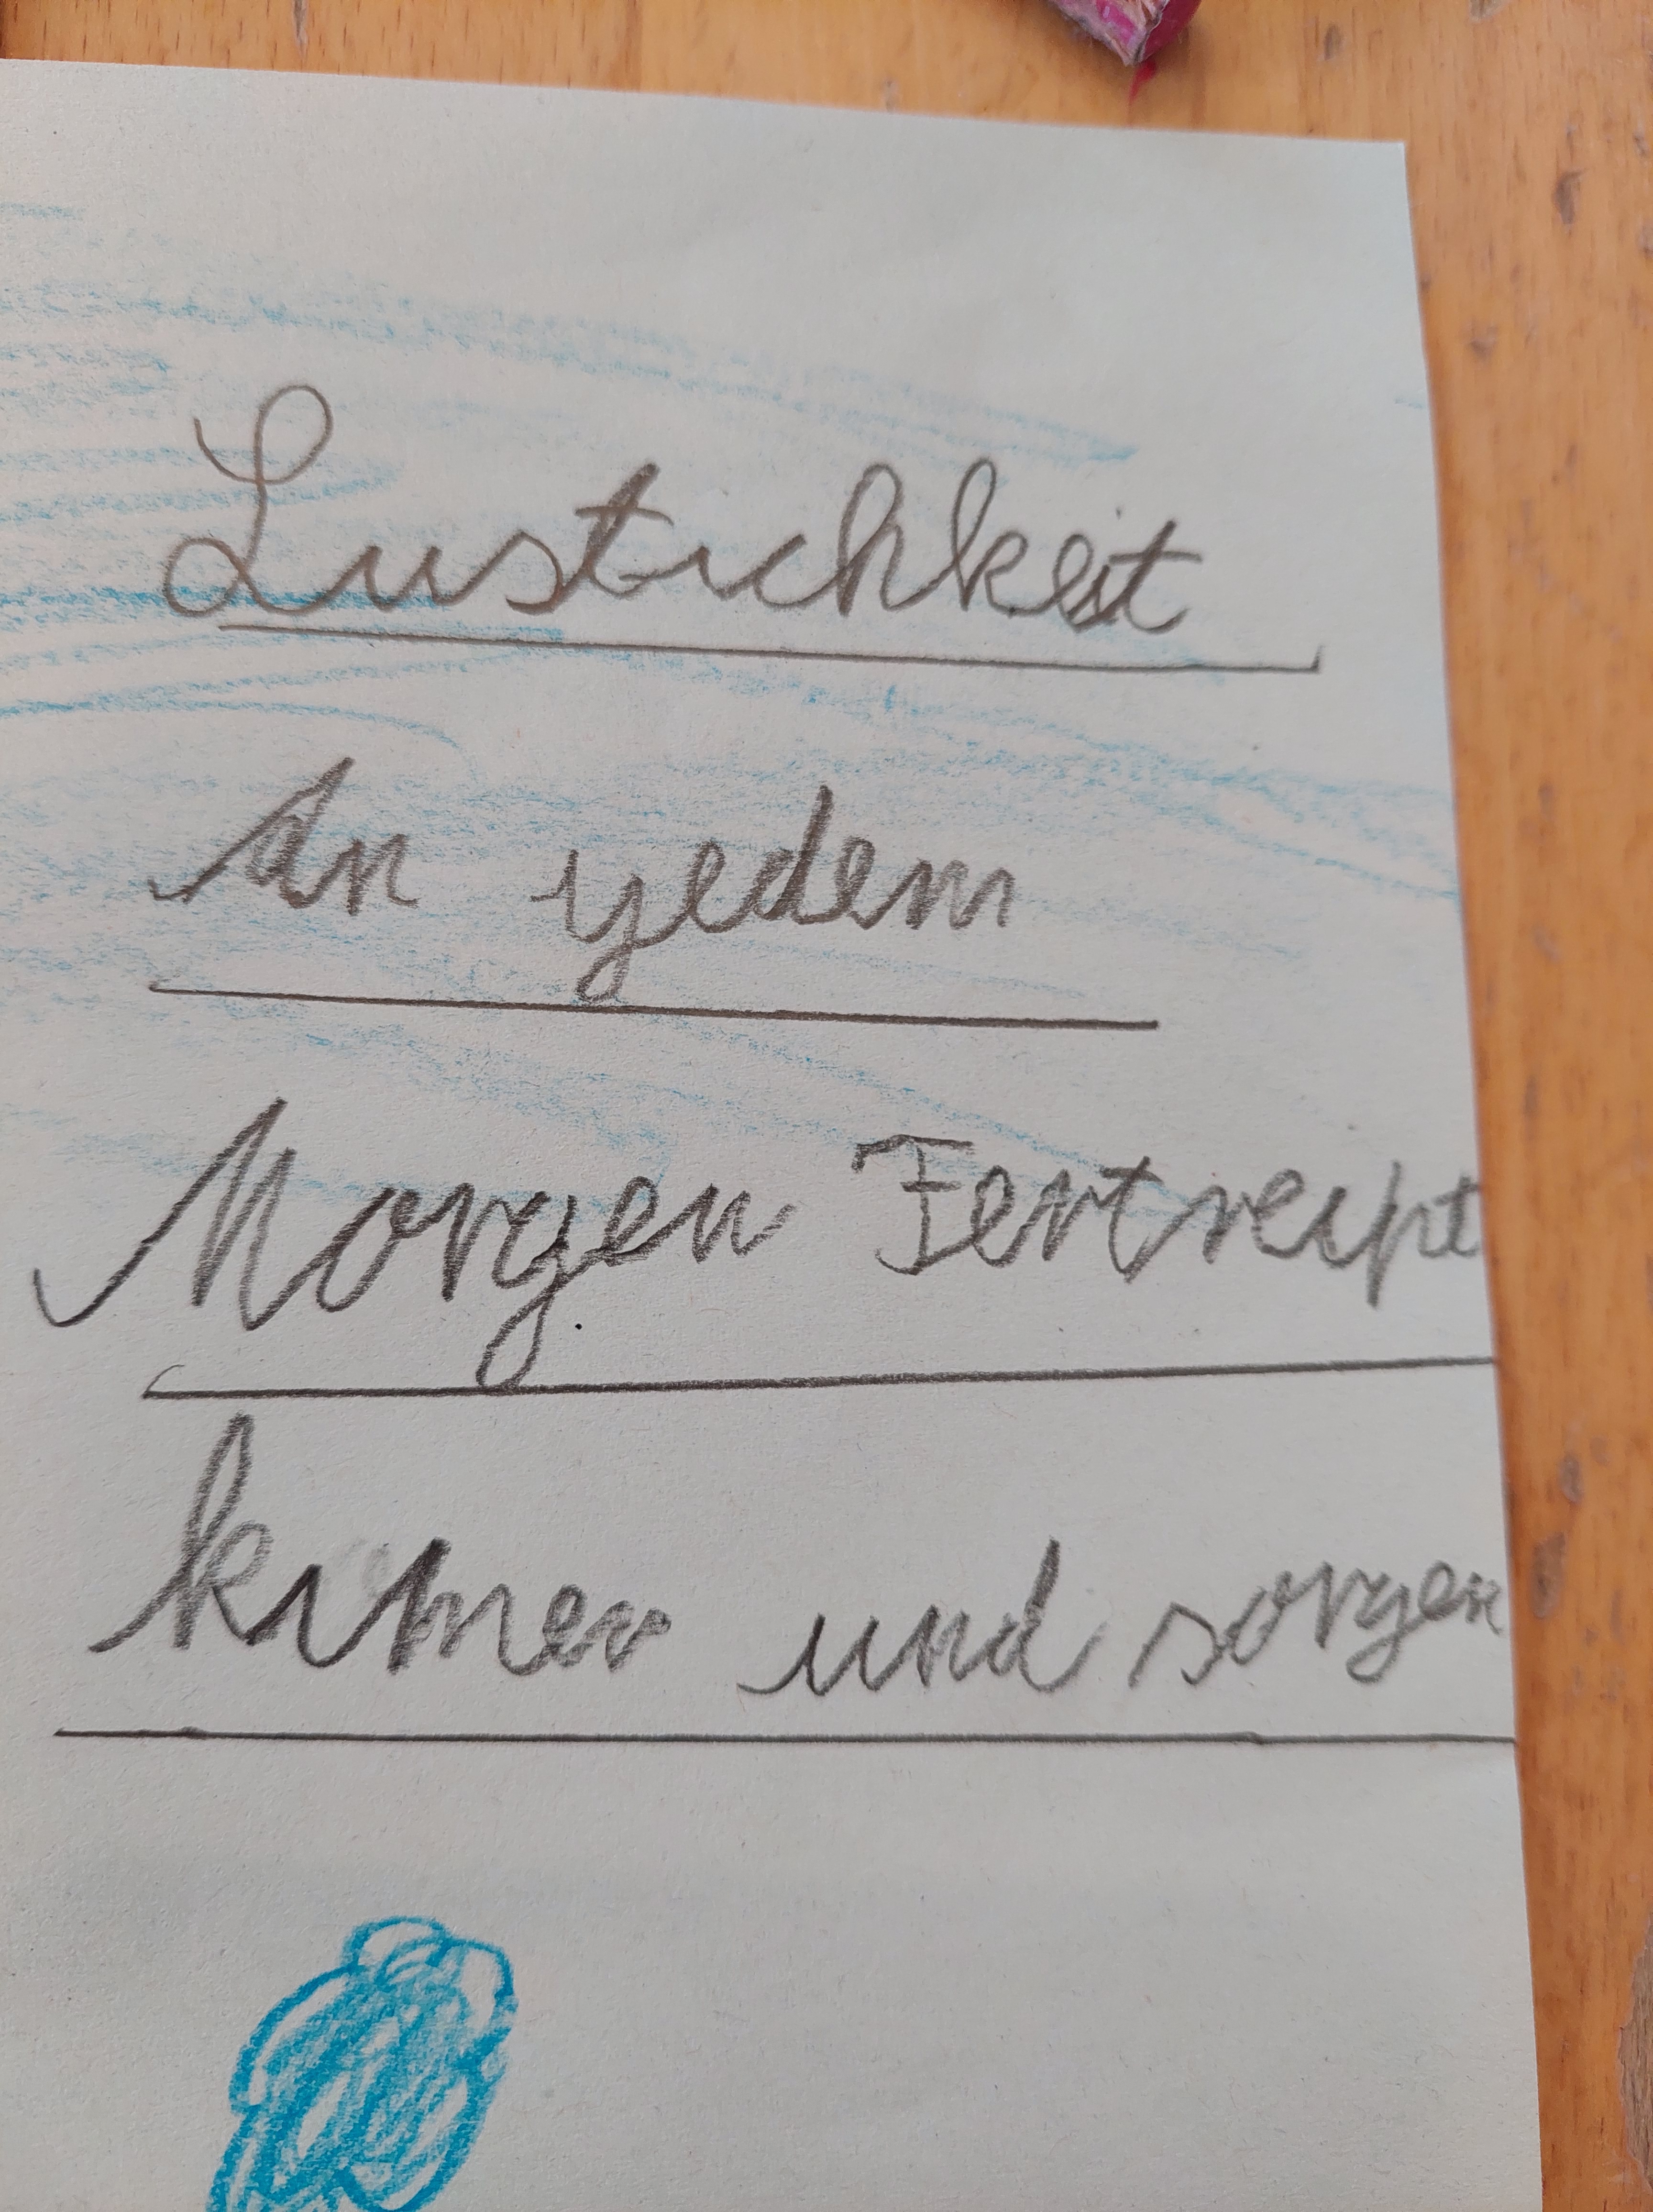 Lustichkeit
An yedem
Morgen Fertreipt
kumer und sorgen